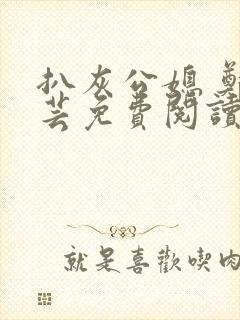 扒灰公媳 鄭
芸免費閱讀
就是喜歡喫肉